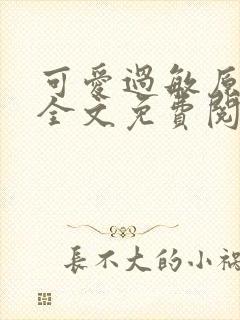 可愛過敏原
全文免費閱
長不大的小